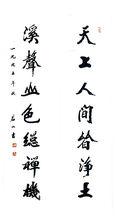 天上人間皆淨土
溪聲山色總禪機